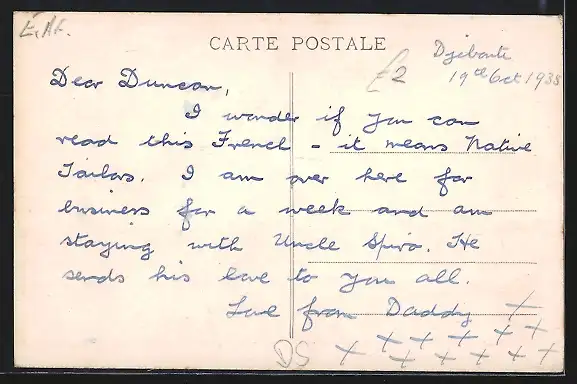 E.Af.
CARTE POSTALE
£2
Djiboute
19th Oct 1935
Dear Duncan,
I wonder if you can
read this French - it means Native
Tailors. I am over here for
business for a week and am
staying with Uncle Spiro. He
sends his love to you all.
Love from Daddy X
X X X X X X
X X X X X X
DS